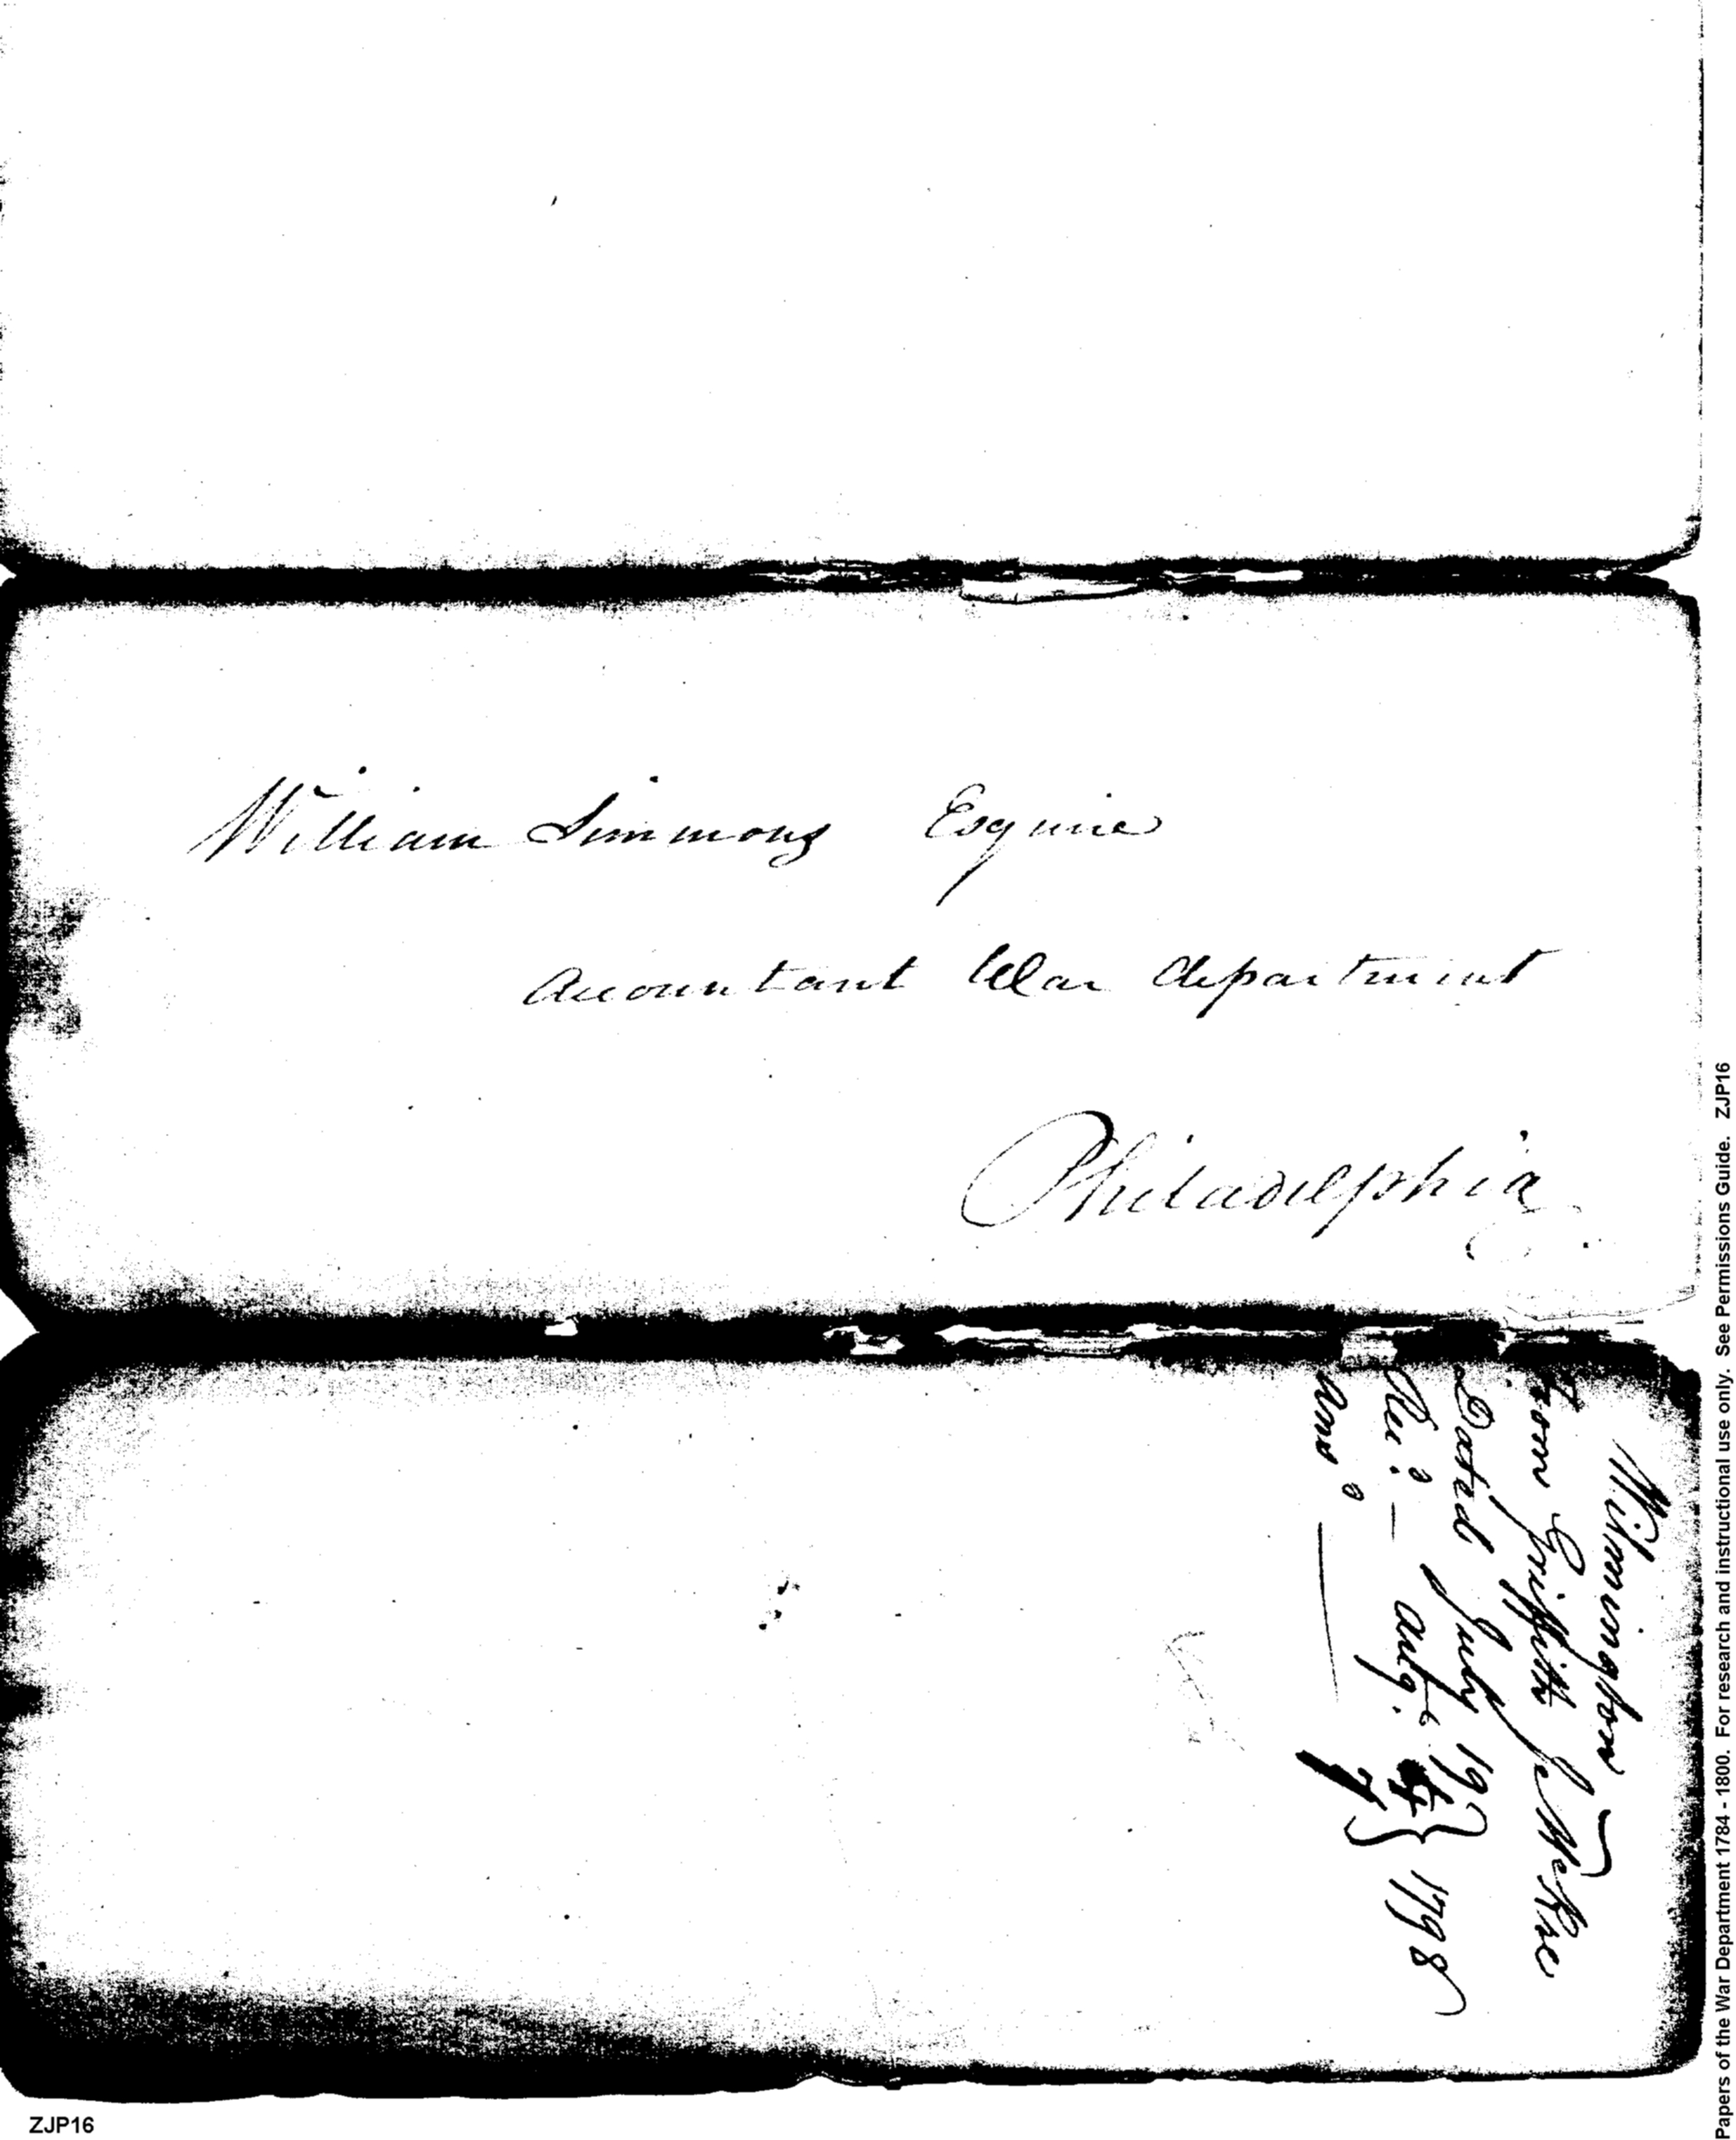 William Simmons Esquire
Accountant War department
Philadelphia
Wilmington
From Griffith J McRee
Dated July 19
Rec.d — Aug. 4
Ans.d — 7
1798
ZJP16
Papers of the War Department 1784 - 1800. For research and instructional use only. See Permissions Guide. ZJP16